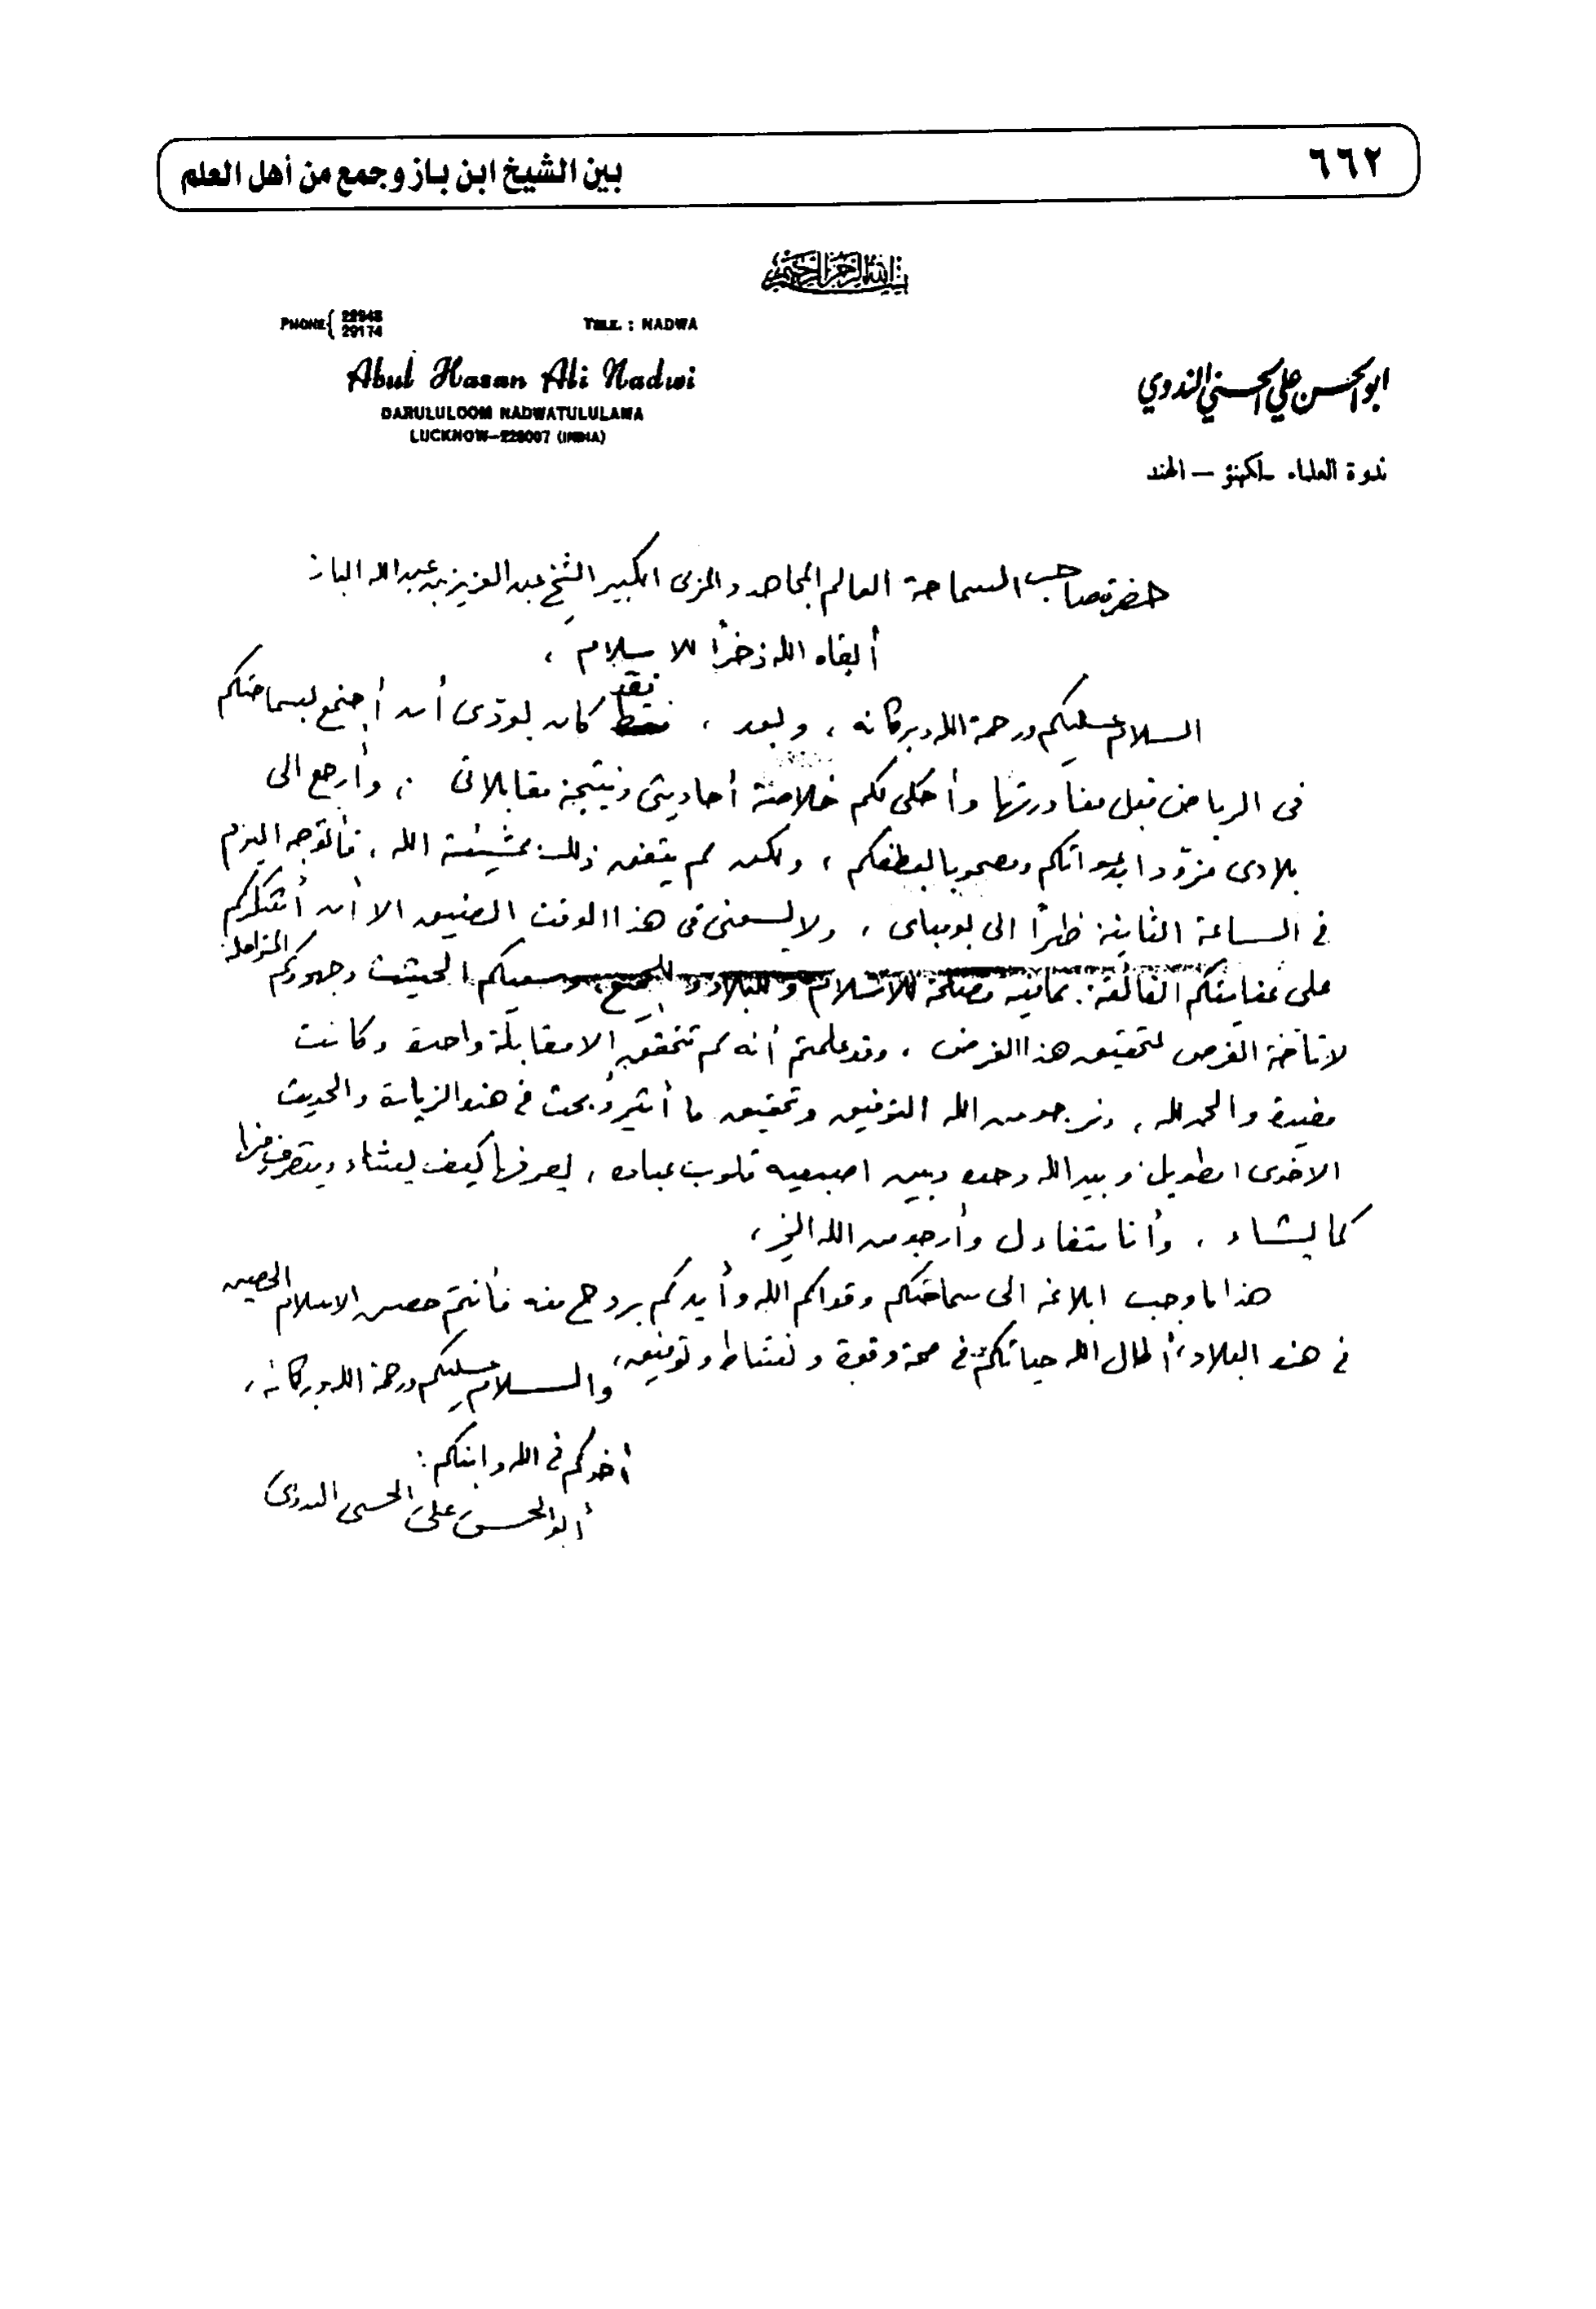 ٦٦٢
بين الشيخ ابن باز وجمع من أهل العلم
بسم الله الرحمن الرحيم
PHONE { 22948
29174
TELE. : NADWA
Abul Hasan Ali Nadwi
DARULULOOM NADWATULULAMA
LUCKNOW-226007 (INDIA)
ابو الحسن علي الحسني الندوي
ندوة العلماء - لكهنؤ - الهند
حضرة صاحب السماحة العالم المجاهد والمربى الكبير الشيخ عبد العزيز بن عبد الله الباز
أبقاه الله ذخراً للاسلام ،
السلام عليكم ورحمة الله وبركاته ، وبعد ، فقد كان بودّى أن أجتمع بسماحتكم
فى الرياض قبل مغادرتها وأحكى لكم خلاصة أحاديثى ونتيجة مقابلاتى ، وأرجع الى
بلادى مزوّدا بدعواتكم ومصحوبا بعطفكم ، ولكن لم يتفق ذلك بمشيئة الله ، فأتوجه اليوم
فى الساعة الثانية ظهراً الى بومباى ، ولا يسعنى فى هذا الوقت الضيق الا أن أشكركم
على عنايتكم الفائقة بما فيه مصلحة للاسلام وللبلاد وللجميع، وسعيكم الحثيث وجهودكم المتواصلة
لاتاحة الفرص لتحقيق هذا الغرض ، وقد علمتم أنه لم تتحقق الا مقابلة واحدة وكانت
مفيدة والحمد لله ، ونرجو من الله التوفيق وتحقيق ما أثير وبحث فى هذه الزيارة والحديث
الاخوى الطويل وبيد الله وحده وبين اصبعيه قلوب عباده ، يصرفها كيف يشاء ويتصرف فيها
كما يشاء ، وأنا متفاءل وأرجو من الله الخير ،
هذا ما وجب ابلاغه الى سماحتكم وقواكم الله وأيدكم بروح منه فأنتم حصن الاسلام الحصين
فى هذه البلاد ، أطال الله حياتكم فى صحة وقوة ونشاط وتوفيق ،
والسلام عليكم ورحمة الله وبركاته ،
أخوكم فى الله وابنكم :
أبو الحسن على الحسنى الندوى